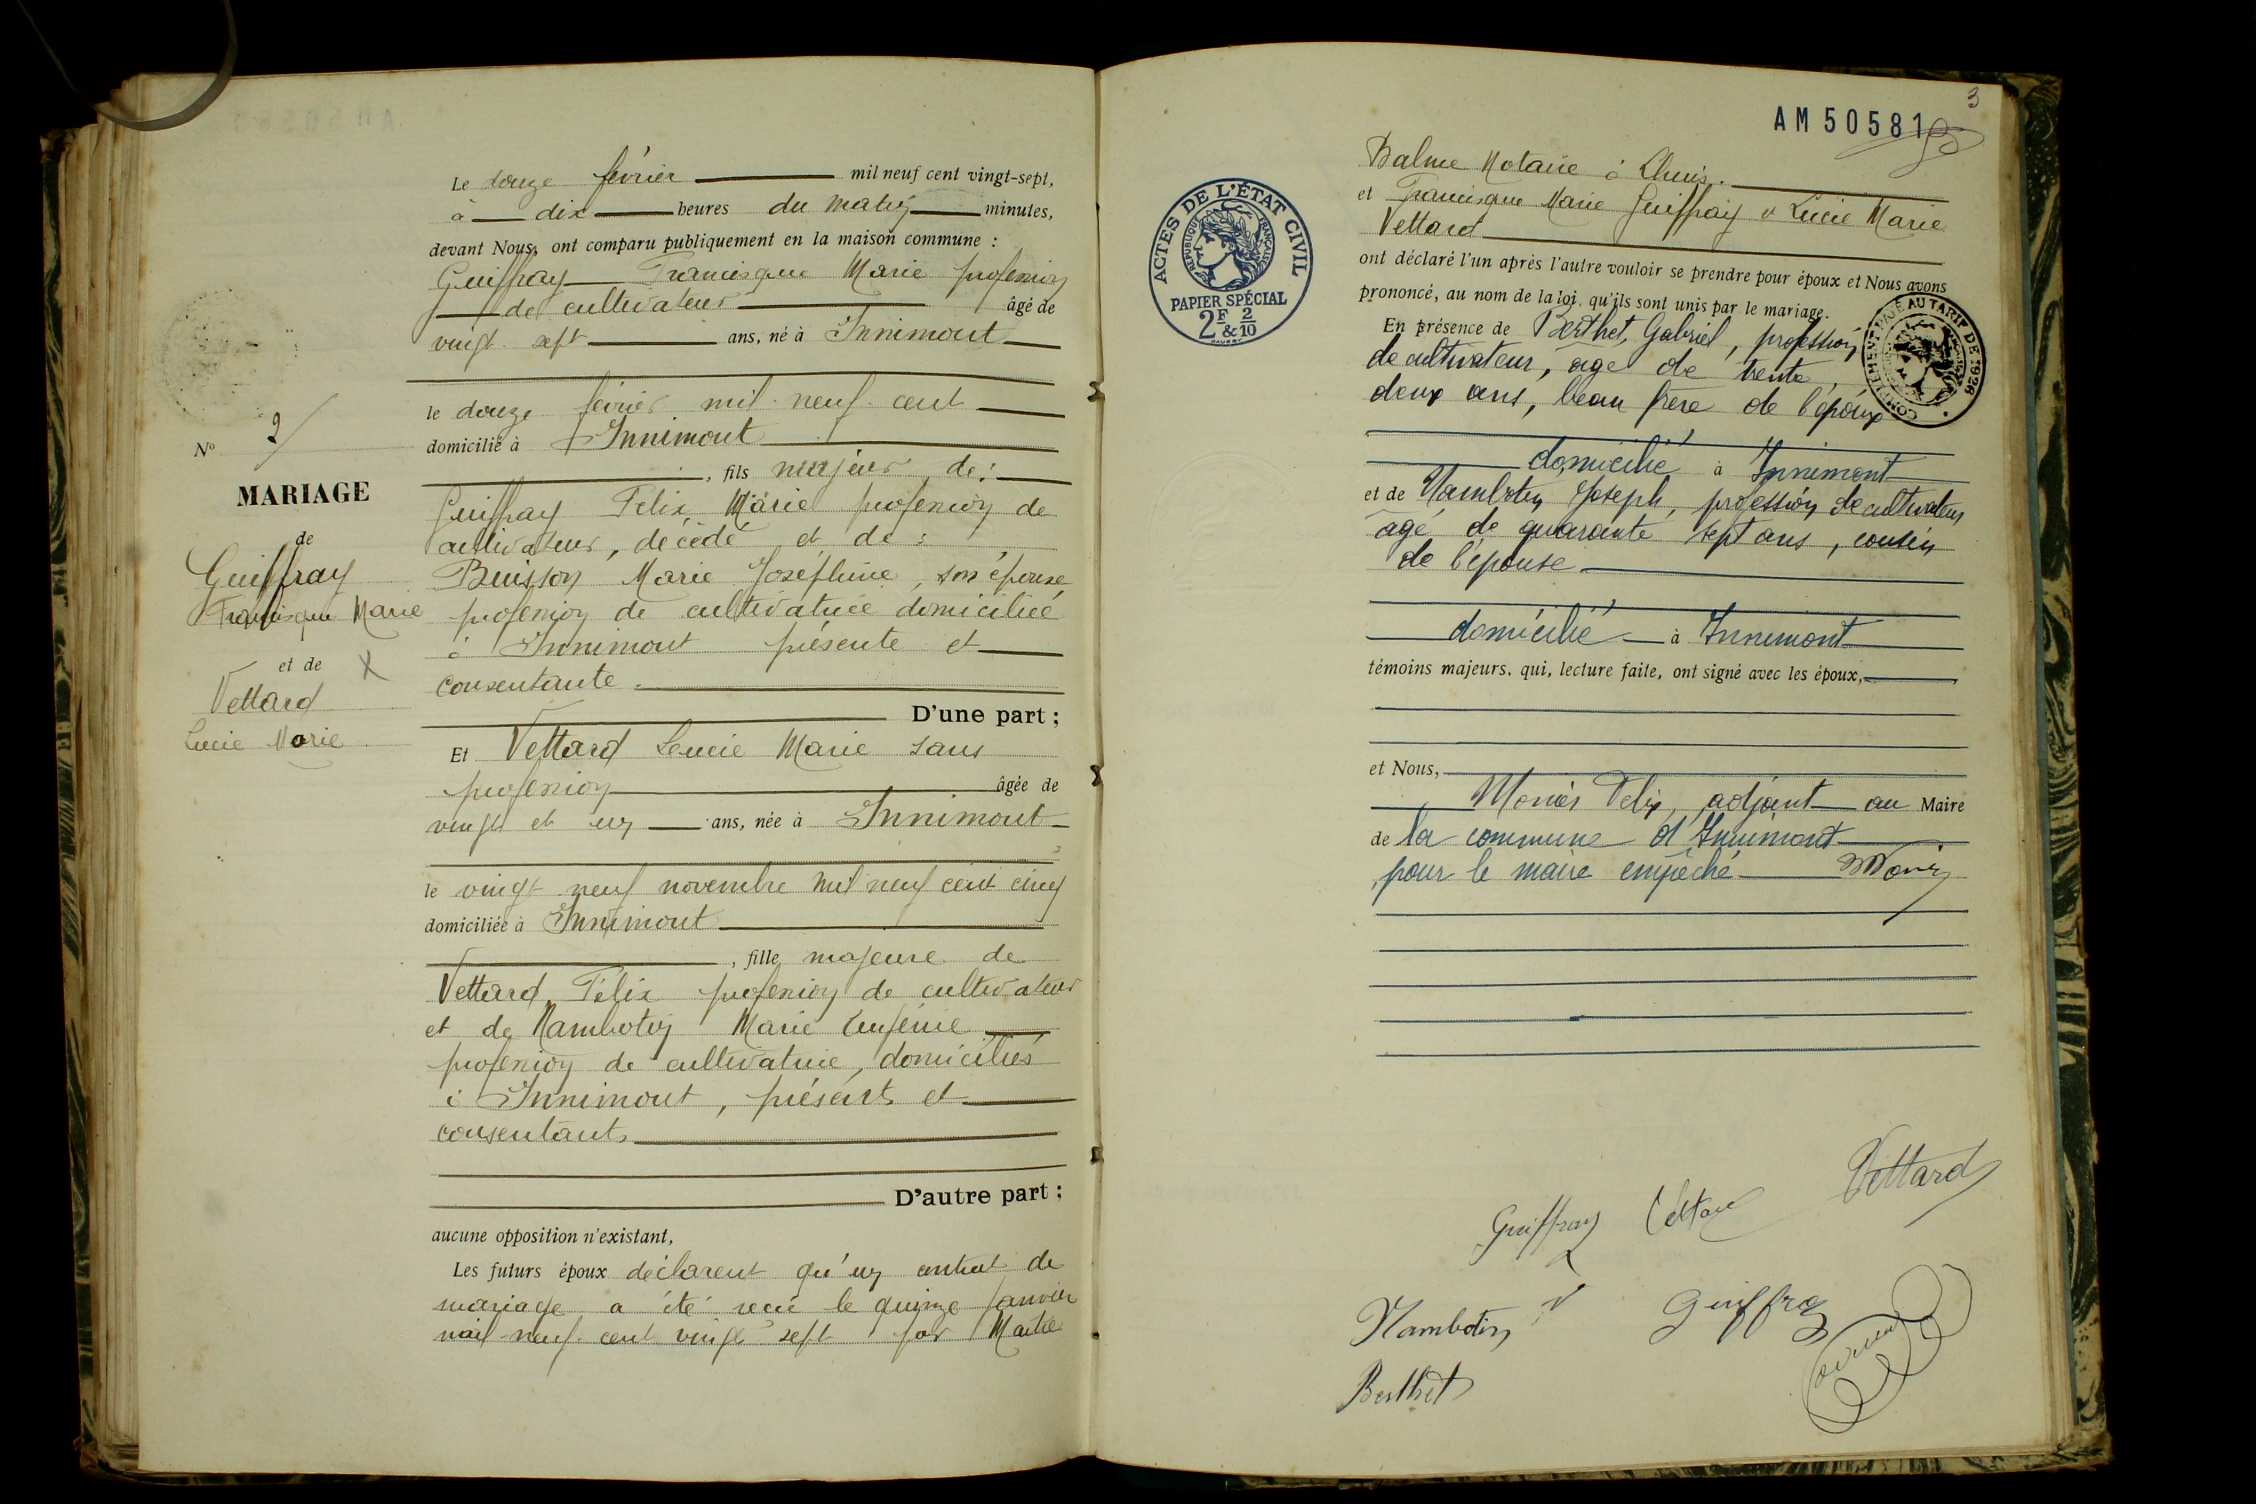 Le douze février mil neuf cent vingt-sept,
à dix heures du matin minutes,
devant Nous, ont comparu publiquement en la maison commune :
Guiffray Francisque Marie profession
de cultivateur âgé de
vingt sept ans, né à Innimont
le douze février mil neuf cent
domicilié à Innimont
, fils majeur de :
Guiffray Felix Marie profession de
cultivateur, décédé et de :
Buisson Marie Joséphine, son épouse
profession de cultivatrice domiciliée
à Innimont présente et
consentante.
D'une part ;
Et Vettard Lucie Marie sans
profession âgée de
vingt et un ans, née à Innimont
le vingt neuf novembre mil neuf cent cinq
domiciliée à Innimont
, fille majeure de
Vettard Félix profession de cultivateur
et de Nambotin Marie Eugénie
profession de cultivatrice, domiciliés
à Innimont, présents et
consentants
D'autre part ;
aucune opposition n'existant,
Les futurs époux déclarent qu'un contrat de
mariage a été recu le quinze janvier
mil neuf cent vingt sept par Maître
N° 2
MARIAGE
de
Guiffray
Francisque Marie
et de
Vettard
Lucie Marie
3
AM 50581
Balme Notaire à Lhuis.
et Francisque Marie Guiffray et Lucie Marie
Vettard
ont déclaré l'un après l'autre vouloir se prendre pour époux et Nous avons
prononcé, au nom de la loi, qu'ils sont unis par le mariage.
En présence de Berthet, Gabriel, profession
de cultivateur, âgé de trente
deux ans, beau frère de l'époux
domicilié à Innimont
et de Nambotin Joseph, profession de cultivateur
âgé de quarante sept ans, cousin
de l'épouse
domicilié à Innimont
témoins majeurs, qui, lecture faite, ont signé avec les époux,
et Nous,
Felix, adjoint au Maire
de la commune d'Innimont
pour le maire empêché
Guiffray Vettard
Nambotin Guiffray
Berthet
ACTES DE L'ÉTAT CIVIL
RÉPUBLIQUE FRANÇAISE
PAPIER SPÉCIAL
2F & 2/10
COMPLEMENT PAYÉ AU TARIF DE 1926